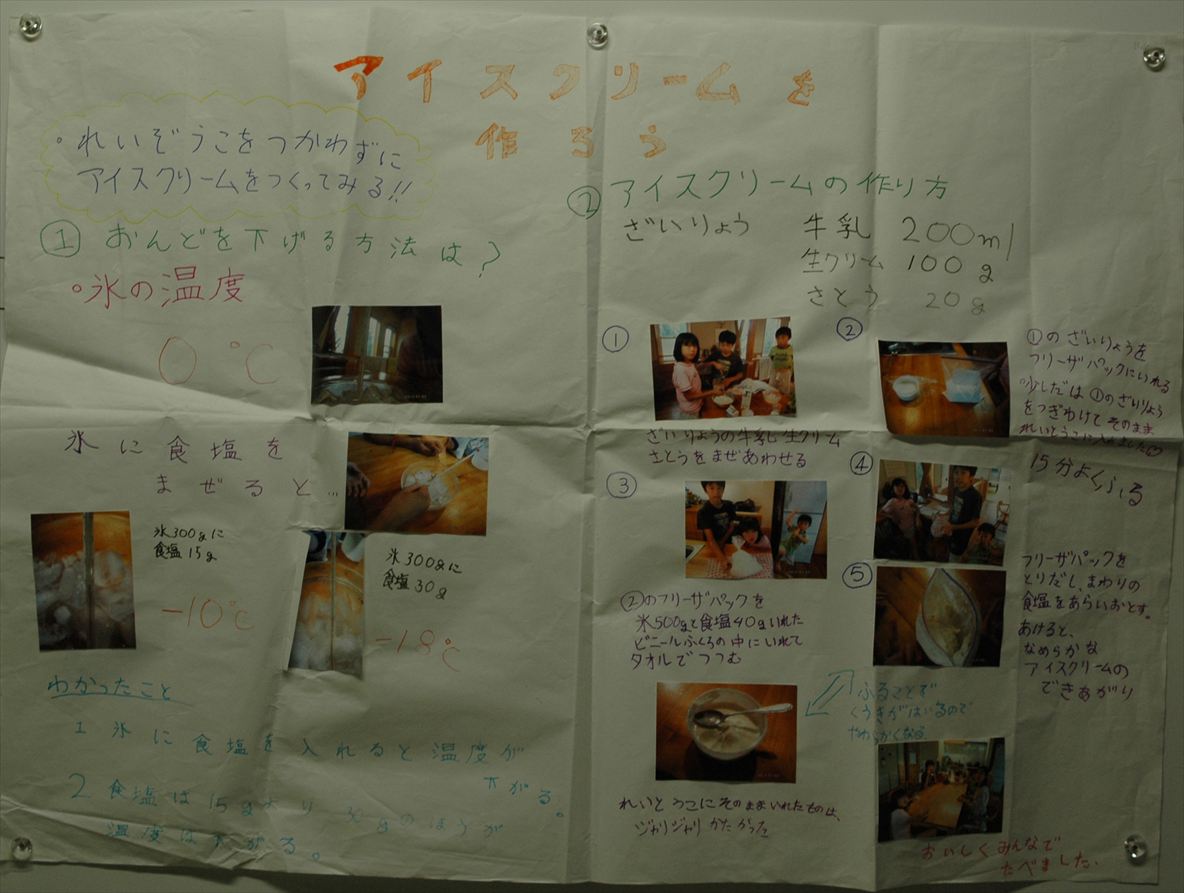 アイスクリームを
作ろう
。れいぞうこをつかわずに
アイスクリームをつくってみる!!
① おんどを下げる方法は?
。氷の温度
0℃
氷に食塩を
まぜると…
氷300gに
食塩15g
-10℃
氷300gに
食塩30g
-18℃
わかったこと
1 氷に食塩を入れると温度が
下がる。
2 食塩は15gより30gのほうが
温度は下がる。
② アイスクリームの作り方
ざいりょう
牛乳 200ml
生クリーム 100g
さとう 20g
①
ざいりょうの牛乳生クリーム
さとうをまぜあわせる
②
①のざいりょうを
フリーザパックにいれる
。少しだは①のざいりょう
をつぎわけてそのまま
れいとうこに入れました
③
②のフリーザパックを
氷500gと食塩40gいれた
ビニールふくろの中にいれて
タオルでつつむ
④
15分よくふる
⑤
フリーザパックを
とりだし、まわりの
食塩をあらいおとす。
あけると、
なめらかな
アイスクリームの
できあがり
ふることで
くうきがはいるので
やわらかくなる。
れいとうこにそのままいれたものは、
ジャリジャリかたかった
おいしくみんなで
たべました。